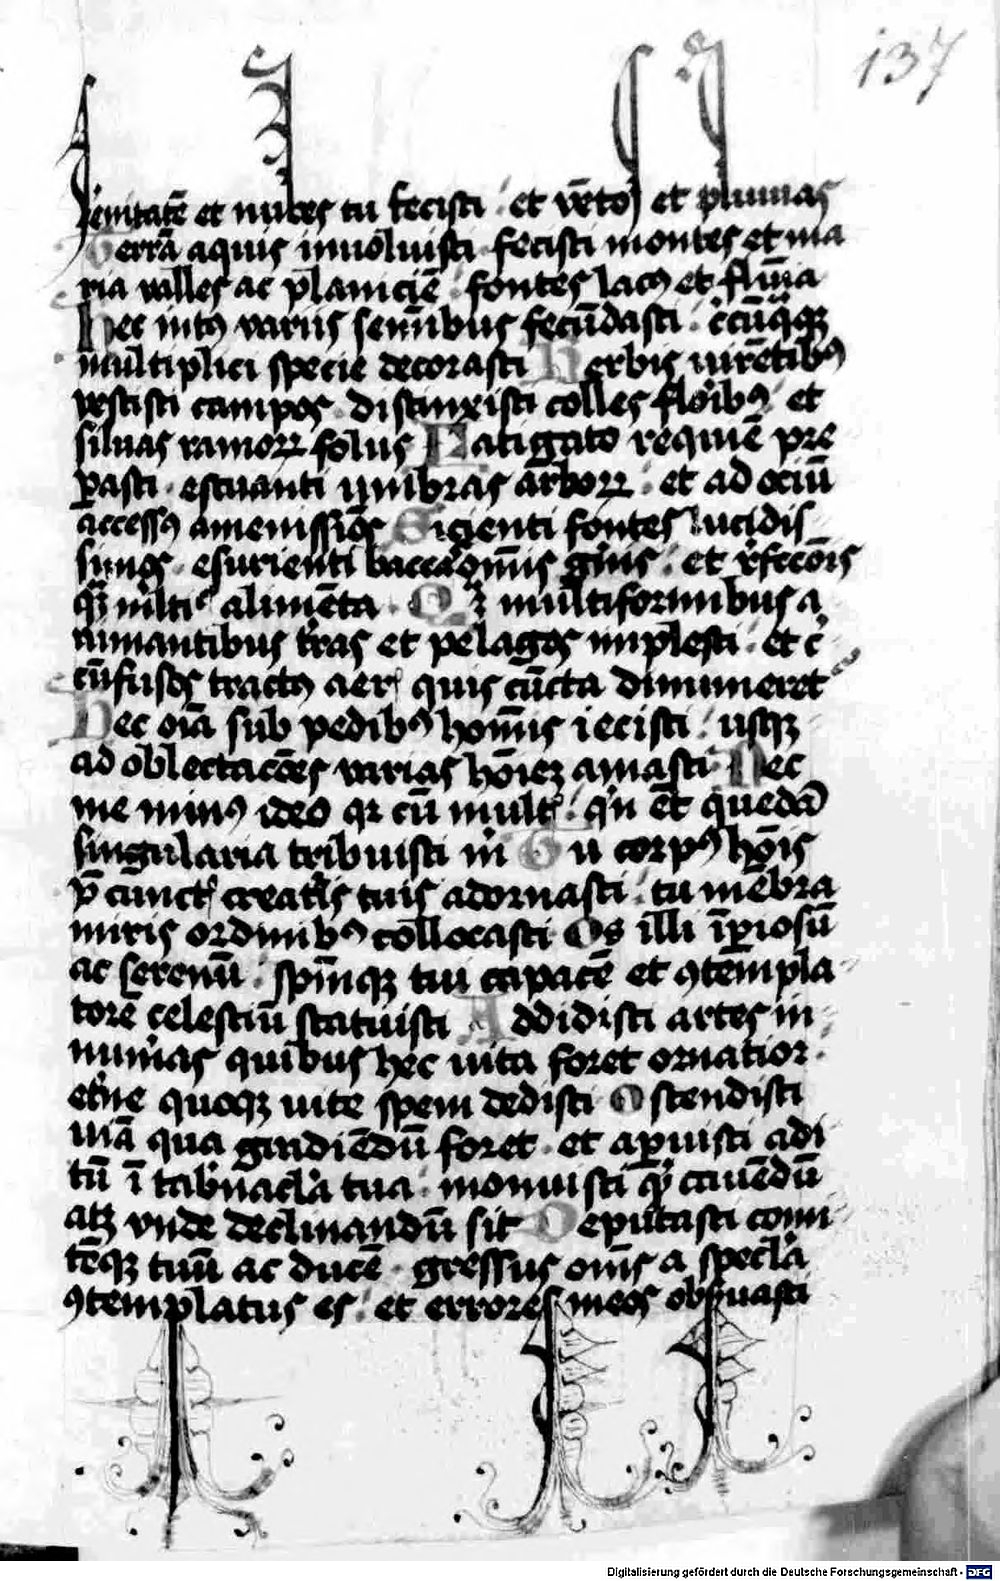 137
serenitatē et nubes tu fecisti · et vētos et pluuias
Terrā aquis inuoluisti fecisti montes et ma
ria valles ac planiciē · fontes lacꝰ et flūīa
Hec intꝰ variis seminibus fecūdasti · c̄cūqꝫ
multiplici specie decorasti Herbis uirētibꝰ
vestisti campos distinxisti colles floribꝰ et
siluas ramoꝝ foliis Fatigato requiē pre
ꝑasti · estuanti umbras arboꝝ · et ad ociū
accessꝰ amenissiōs Sicienti fontes lucidis
simos · esurienti baccaꝝ omīs gn̄is · et rͥfeccōis
qꝫ mlti alimēta · Q̄ multiformibus a
nimantibus tr̄as et pelagos implesti · et cͥ
cūfusos tractꝰ aerꝭ quis cūcta dinumeret
Hec oīa sub pedibꝰ homīs iecisti · usqꝫ
ad oblectacōes varias hōiēz amasti Nec
me minꝰ ideo qꝛ cū multꝭ · qn̄ et quedā
singularia tribuisti mͥ Tu corpꝰ hōis
p̄ cūnctꝭ creatͥs tuis adornasti · tu mēbra
miris ordinibꝰ collocasti Os illi īꝑiosū
ac serenū · spm̄qꝫ tui capacē et ꝯtēmpla
torē celestiū statuisti Addidisti artes in
num̄as quibus hec uita foret ornatior
et̄ne quoqꝫ uite spem dedisti Ostendisti
uiā qua gradiēdū foret · et aꝑuisti adi
tū ī tab̄nacl̄a tua · monuisti qͥ cauēdū
atqꝫ vnde declinandū sit Deputasti comi
tēqꝫ tuū ac ducē · gressus om̄s a specl̄a
ꝯtemplatus es · et errores meos obs̄uasti
Digitalisierung gefördert durch die Deutsche Forschungsgemeinschaft - DFG